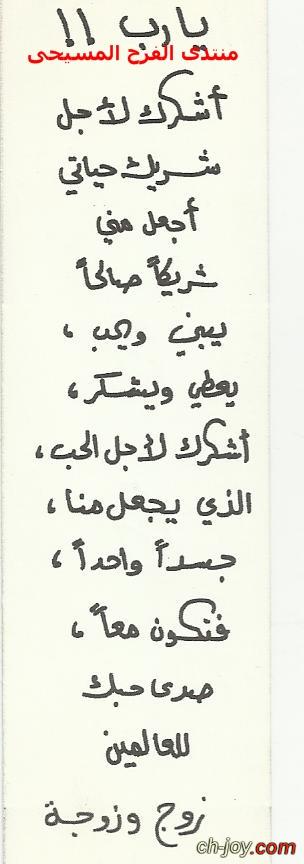 يا رب !!
منتدى الفرح المسيحى
أشكرك لأجل
شريك حياتي
أجعل مني
شريكاً صالحاً
يبني ويحب ،
يعطي ويشكر ،
أشكرك لأجل الحب ،
الذي يجعل منا ،
جسداً واحداً ،
فنكون معاً ،
صدى حبك
للعالمين
زوج وزوجة
ch-joy.com